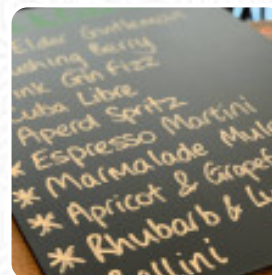 Elder Gentleman
Berry
Gin Fizz
Cuba Libre
Aperol Spritz
* Espresso Martini
* Marmalade
* Apricot &
* Rhubarb &
Bellini